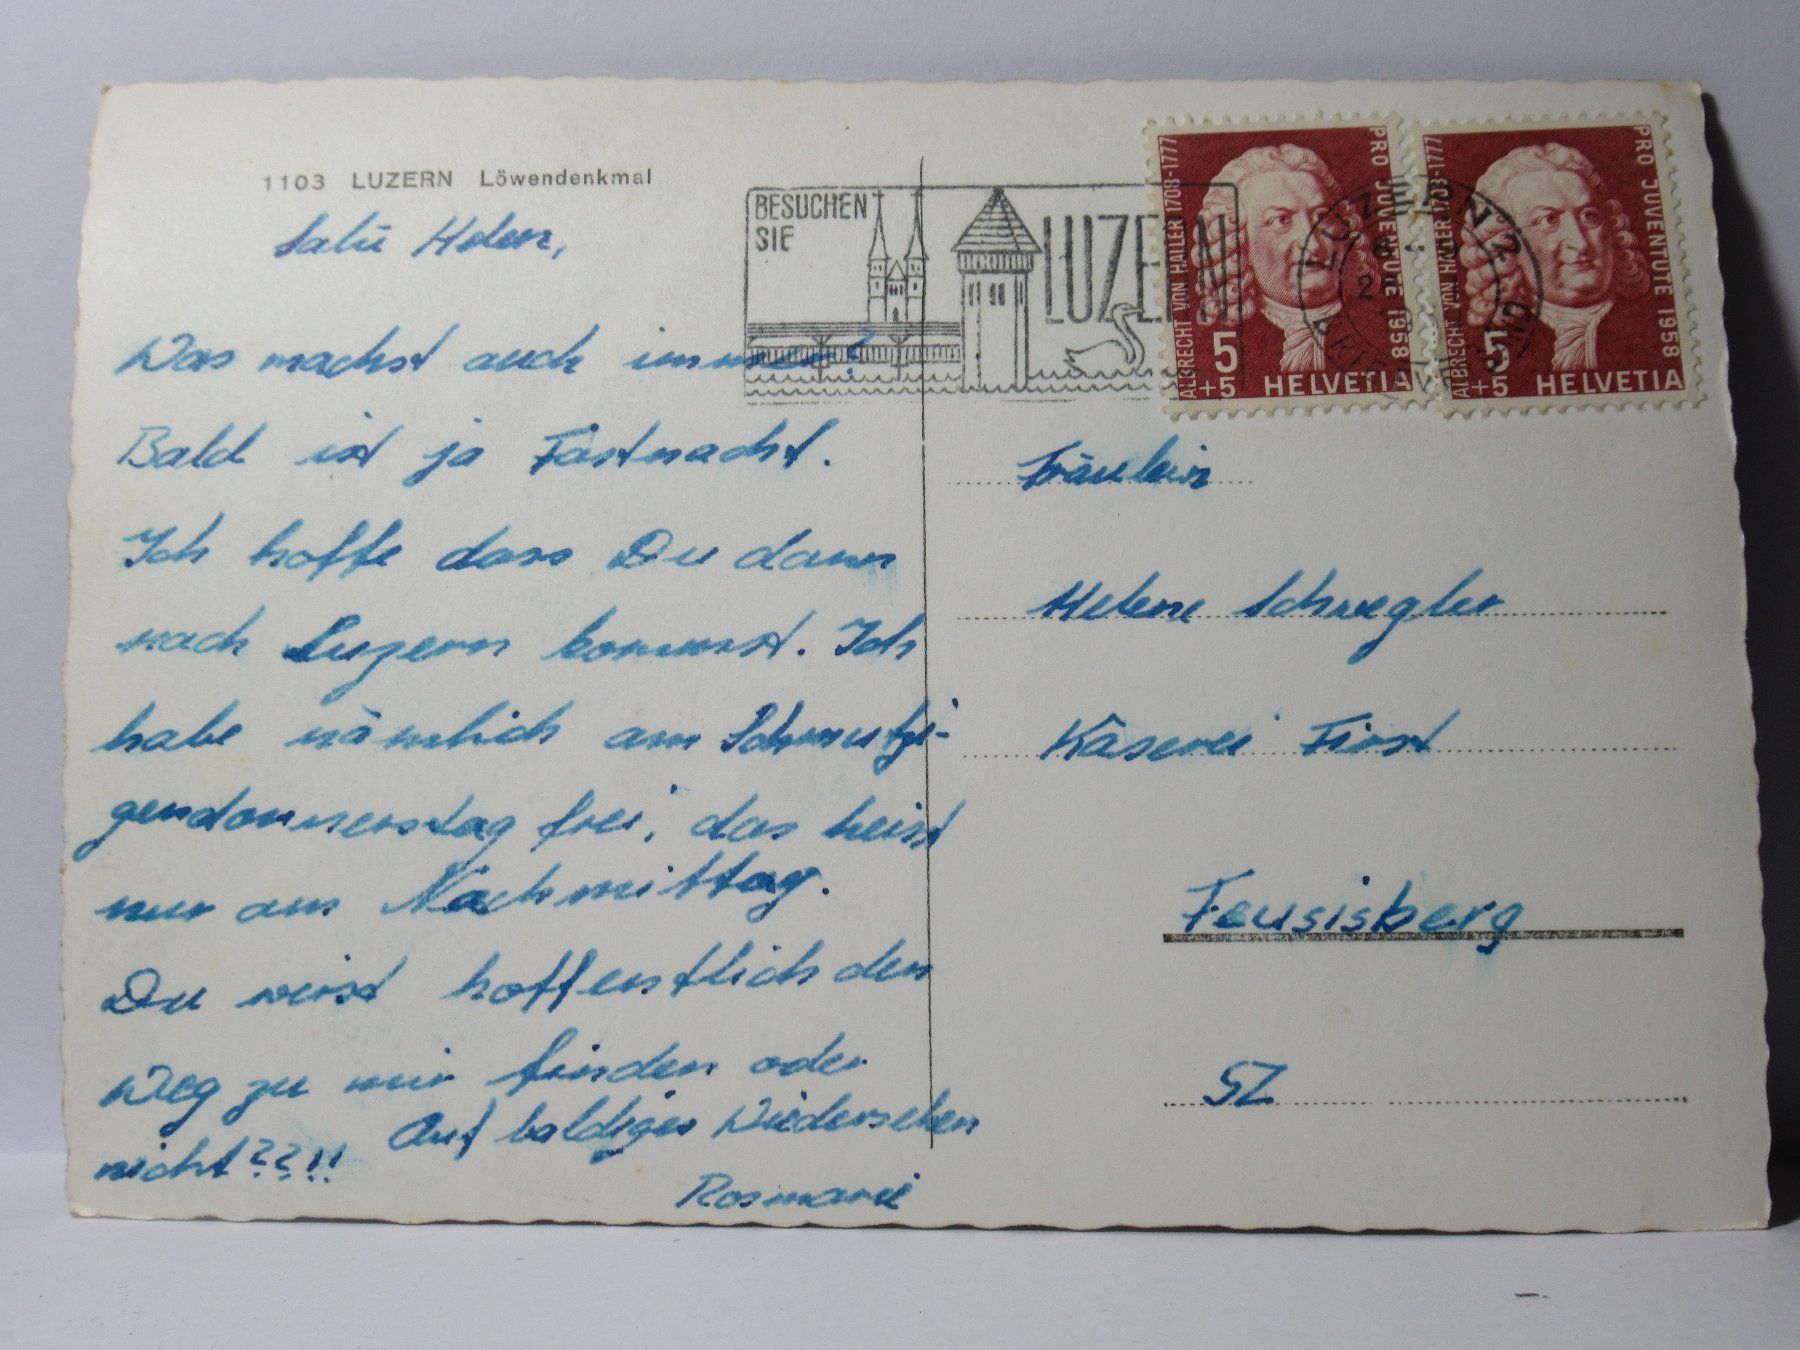 1103 LUZERN Löwendenkmal
Salü Helen,
Was machst auch immer?
Bald ist ja Fastnacht.
Ich hoffe dass Du dann
nach Luzern kommst. Ich
habe nämlich am Schmutzi-
gendonnerstag frei, das heist
nur am Nachmittag.
Du weist hoffentlich den
Weg zu mir finden oder
nicht??!!
Auf baldiges Wiedersehen
Rosmarie
BESUCHEN
SIE
LUZERN
ALBRECHT VON HALLER 1708-1777
PRO JUVENTUTE 1958
5
+5
HELVETIA
ALBRECHT VON HALLER 1708-1777
PRO JUVENTUTE 1958
5
+5
HELVETIA
LUZERN 2
Fräulein
Helene Schwegler
Käserei First
Feusisberg
SZ